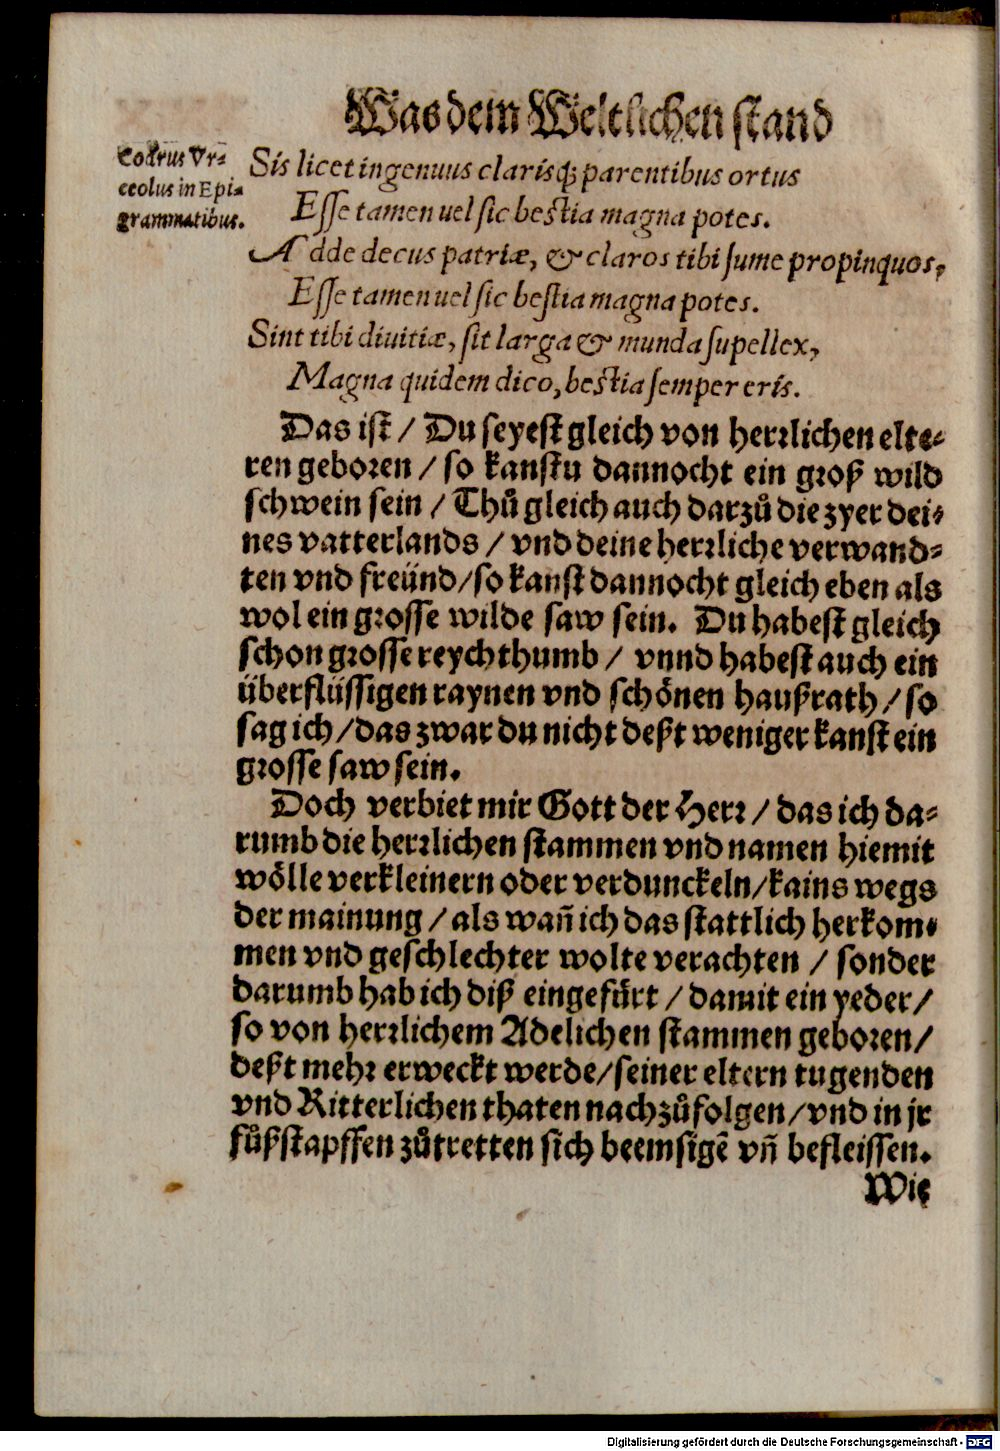 Was dem Weltlichen stand
Codrus Vr-
ceolus in Epi-
grammatibus.
Sis licet ingenuus clarisq́; parentibus ortus
Esse tamen uel sic bestia magna potes.
Adde decus patriæ, & claros tibi sume propinquos,
Esse tamen uel sic bestia magna potes.
Sint tibi diuitiæ, sit larga & munda supellex,
Magna quidem dico, bestia semper eris.
Das ist / Du seyest gleich von herrlichen elte-
ren geboren / so kanstu dannocht ein groß wild
schwein sein / Thů gleich auch darzů die zyer dei-
nes vatterlands / vnd deine herrliche verwand-
ten vnd freünd/so kanst dannocht gleich eben als
wol ein grosse wilde saw sein. Du habest gleich
schon grosse reychthumb / vnnd habest auch ein
überflüssigen raynen vnd schönen haußrath / so
sag ich /das zwar du nicht deßt weniger kanst ein
grosse saw sein.
Doch verbiet mir Gott der Herr / das ich da-
rumb die herrlichen stammen vnd namen hiemit
wölle verkleinern oder verdunckeln/kains wegs
der mainung / als wañ ich das stattlich herkom-
men vnd geschlechter wolte verachten / sonder
darumb hab ich diß eingefürt / damit ein yeder/
so von herrlichem Adelichen stammen geboren/
deßt mehr erweckt werde/seiner eltern tugenden
vnd Ritterlichen thaten nachzůfolgen/vnd in jr
fůßstapffen zůtretten sich beemsigẽ vñ befleissen.
Wie
Digitalisierung gefördert durch die Deutsche Forschungsgemeinschaft - DFG